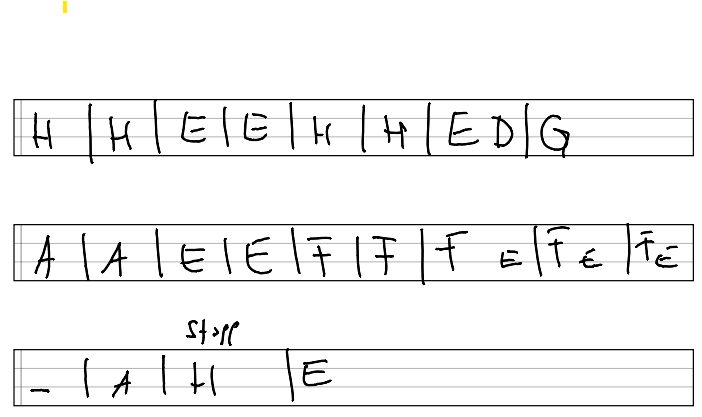 H | H | E | E | H | H | E D | G
A | A | E | E | F | F | F E | F E | F E
Stopp
– | A | H | E